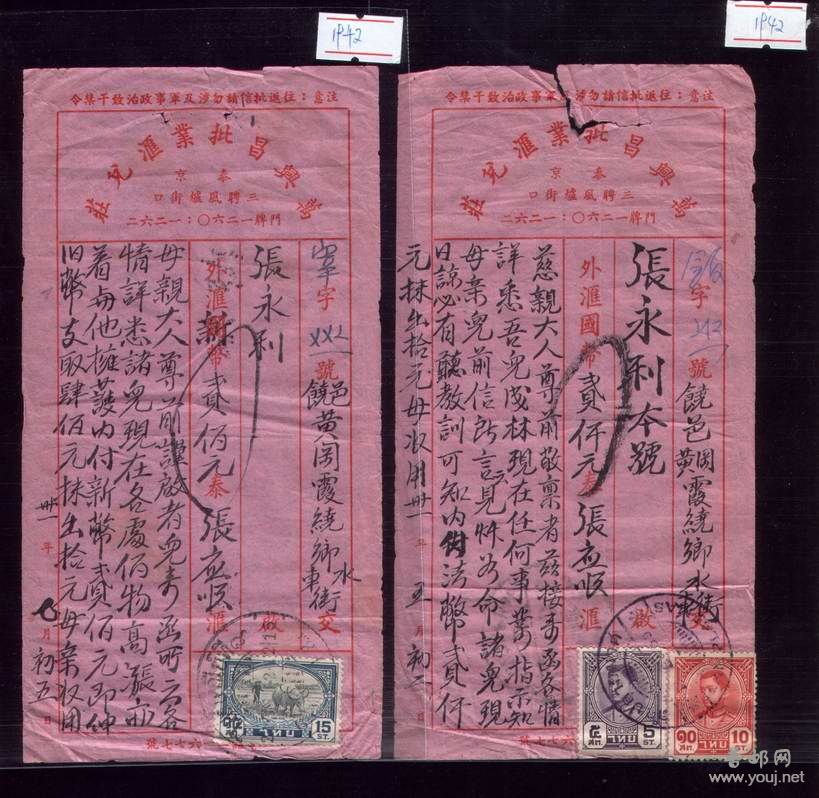 1942
注意：往返批信請勿涉及軍事政治致干禁令
萬興昌批業滙兌莊
泰京
三聘風爐街口
門牌一二六〇：一二六二
字
號
饒邑黃岡霞繞鄉水車街
交
張永利
啟
外滙國幣
新
貳佰元泰
張應順
滙
母親大人尊前謹啟者兒
情詳悉諸兒現在各處佰物高漲亦
着每他擁護內付新幣貳佰元即伸
旧幣支取肆佰元抹出拾元母親收用
卅一年七月初五日
六七七號
15
ST.
1942
注意：往返批信請勿涉及軍事政治致干禁令
萬興昌批業滙兌莊
泰京
三聘風爐街口
門牌一二六〇：一二六二
字
號
饒邑黃岡霞繞鄉水車街
交
張永利本號
啟
外滙國幣貳仟元泰
張應順
滙
慈親大人尊前敬稟者茲接來函各情
詳悉吾兒成林現在任何事業指示知
母親兒前信所言
命諸兒現
日諒必有聽教訓可知內付法幣貳仟
元抹出拾元母收用卅一年五月初二日
六七七號
5
ST.
10
ST.
邮网
www.youj.net